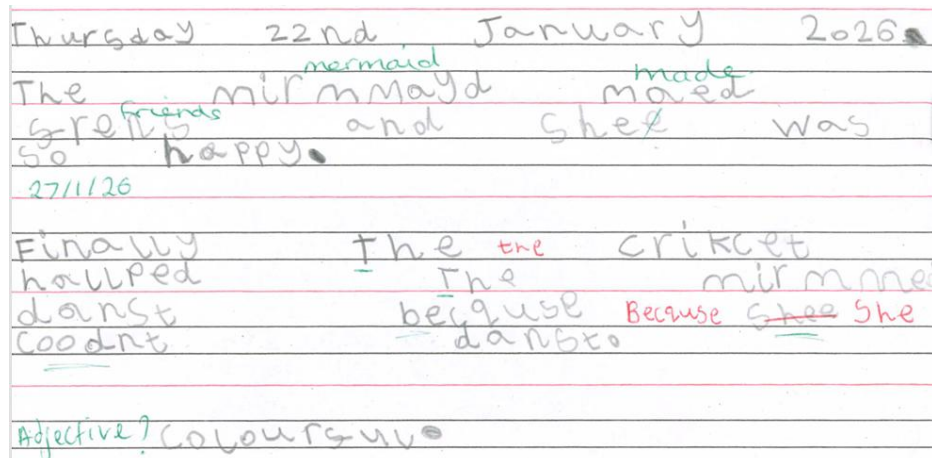 Thursday 22nd January 2026.
mermaid made
The mirmmayd maed
friends
srens and shee was
so happy.
27/1/26
Finally The the crikcet
hallped The mirmme
danst becquse Becquse Shee She
coodnt danst.
Adjective? Coloursul.